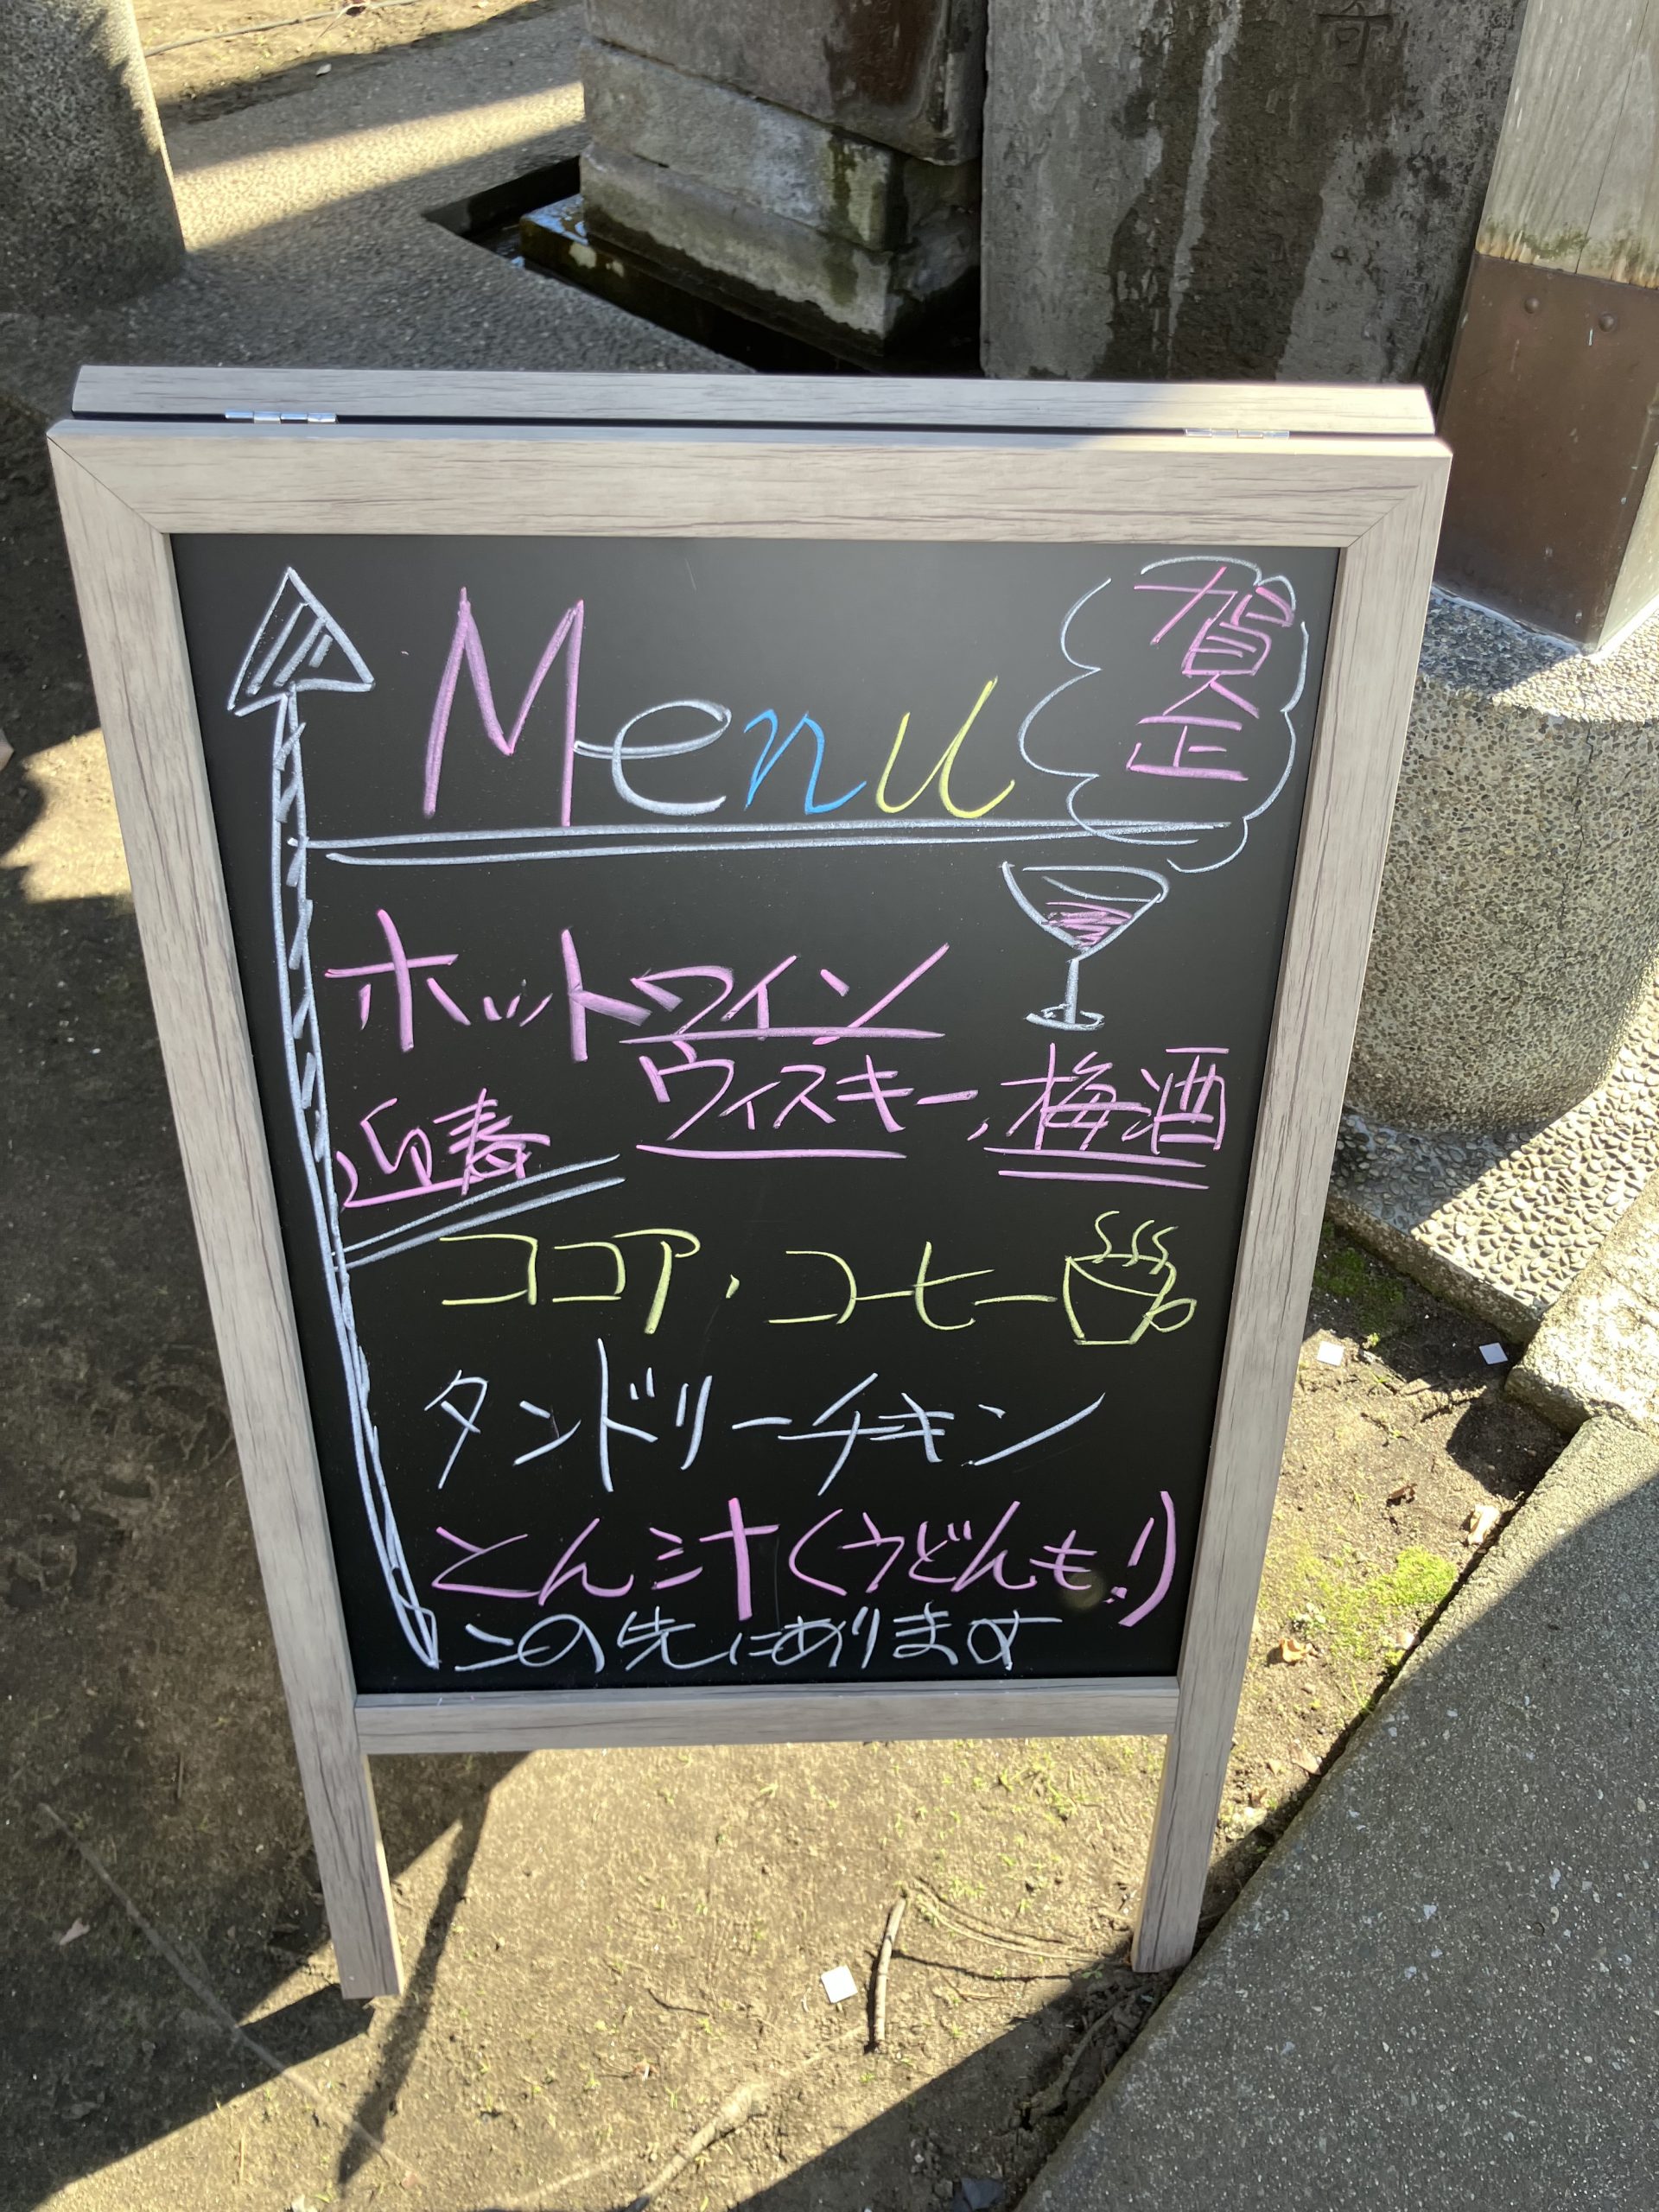 Menu
賀正
ホットワイン
ウィスキー、梅酒
迎春
ココア・コーヒー
タンドリーチキン
とん汁(うどんも!)
この先にあります